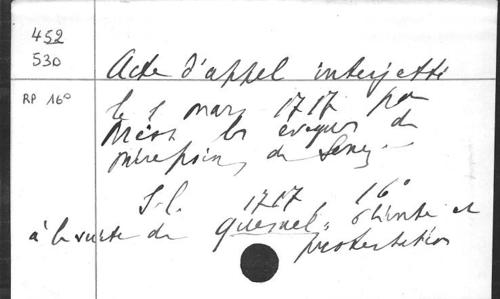 452
530
Acte d'appel interjetté
RP 16°
le 1 mars 1717 par
Mess les evêques de
Mirepoix, de Senez
S.l. 1717 16°
à la suite de Quesnel, et
protestation